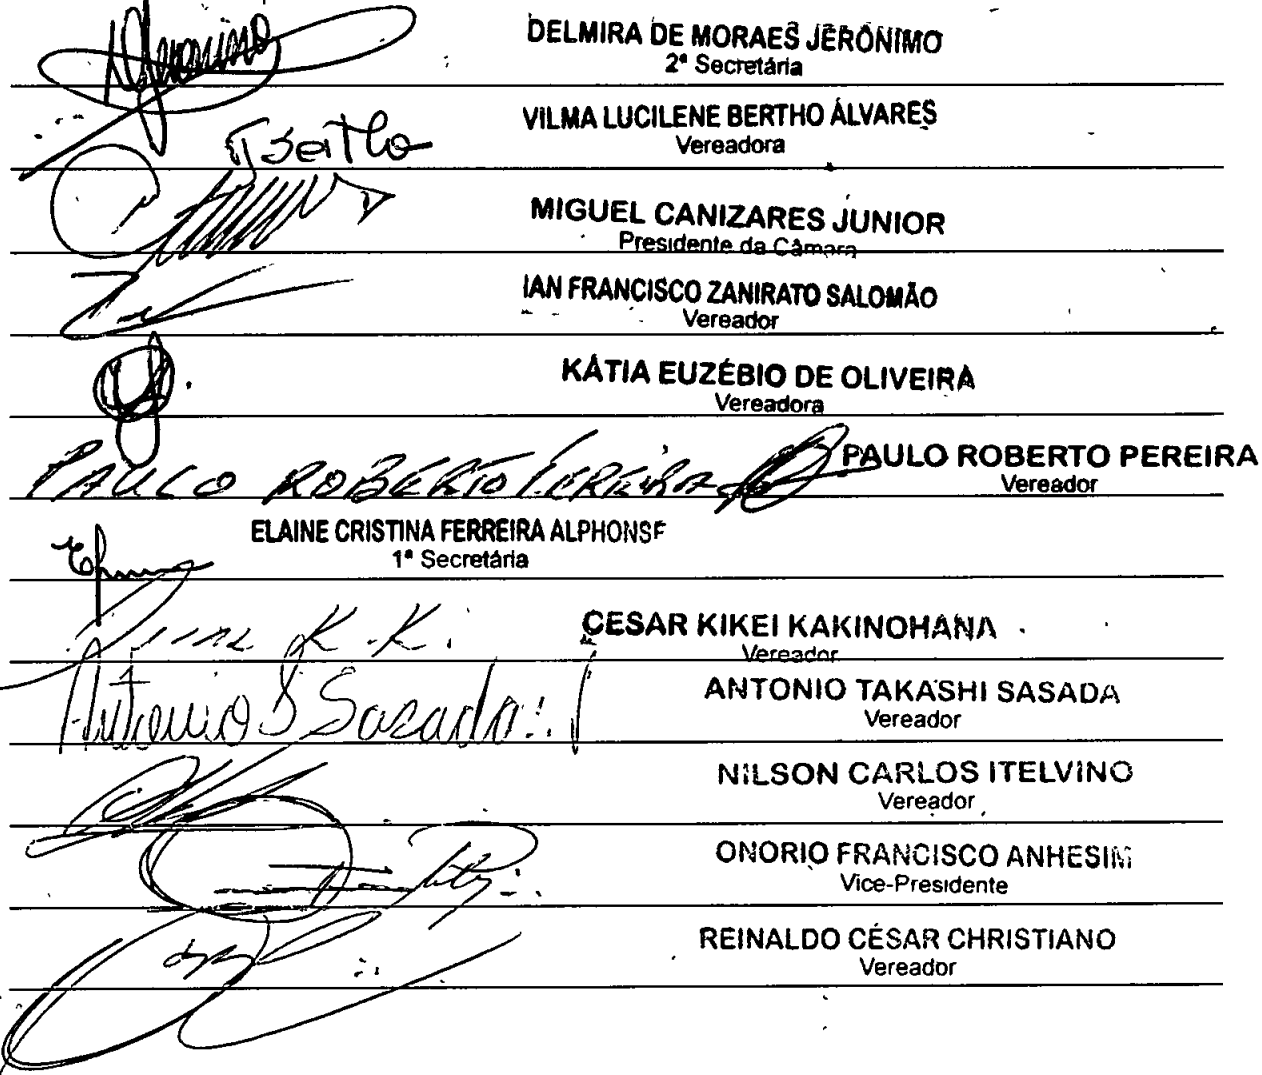 DELMIRA DE MORAES JERÔNIMO
2ª Secretária
VILMA LUCILENE BERTHO ÁLVARES
Vereadora
Bertho
MIGUEL CANIZARES JUNIOR
Presidente da Câmara
IAN FRANCISCO ZANIRATO SALOMÃO
Vereador
KÁTIA EUZÉBIO DE OLIVEIRA
Vereadora
PAULO ROBERTO PEREIRA
PAULO ROBERTO PEREIRA
Vereador
ELAINE CRISTINA FERREIRA ALPHONSE
1ª Secretária
K. K.
CESAR KIKEI KAKINOHANA
Vereador
Antonio Sasada
ANTONIO TAKASHI SASADA
Vereador
NILSON CARLOS ITELVINO
Vereador
ONORIO FRANCISCO ANHESIM
Vice-Presidente
REINALDO CÉSAR CHRISTIANO
Vereador